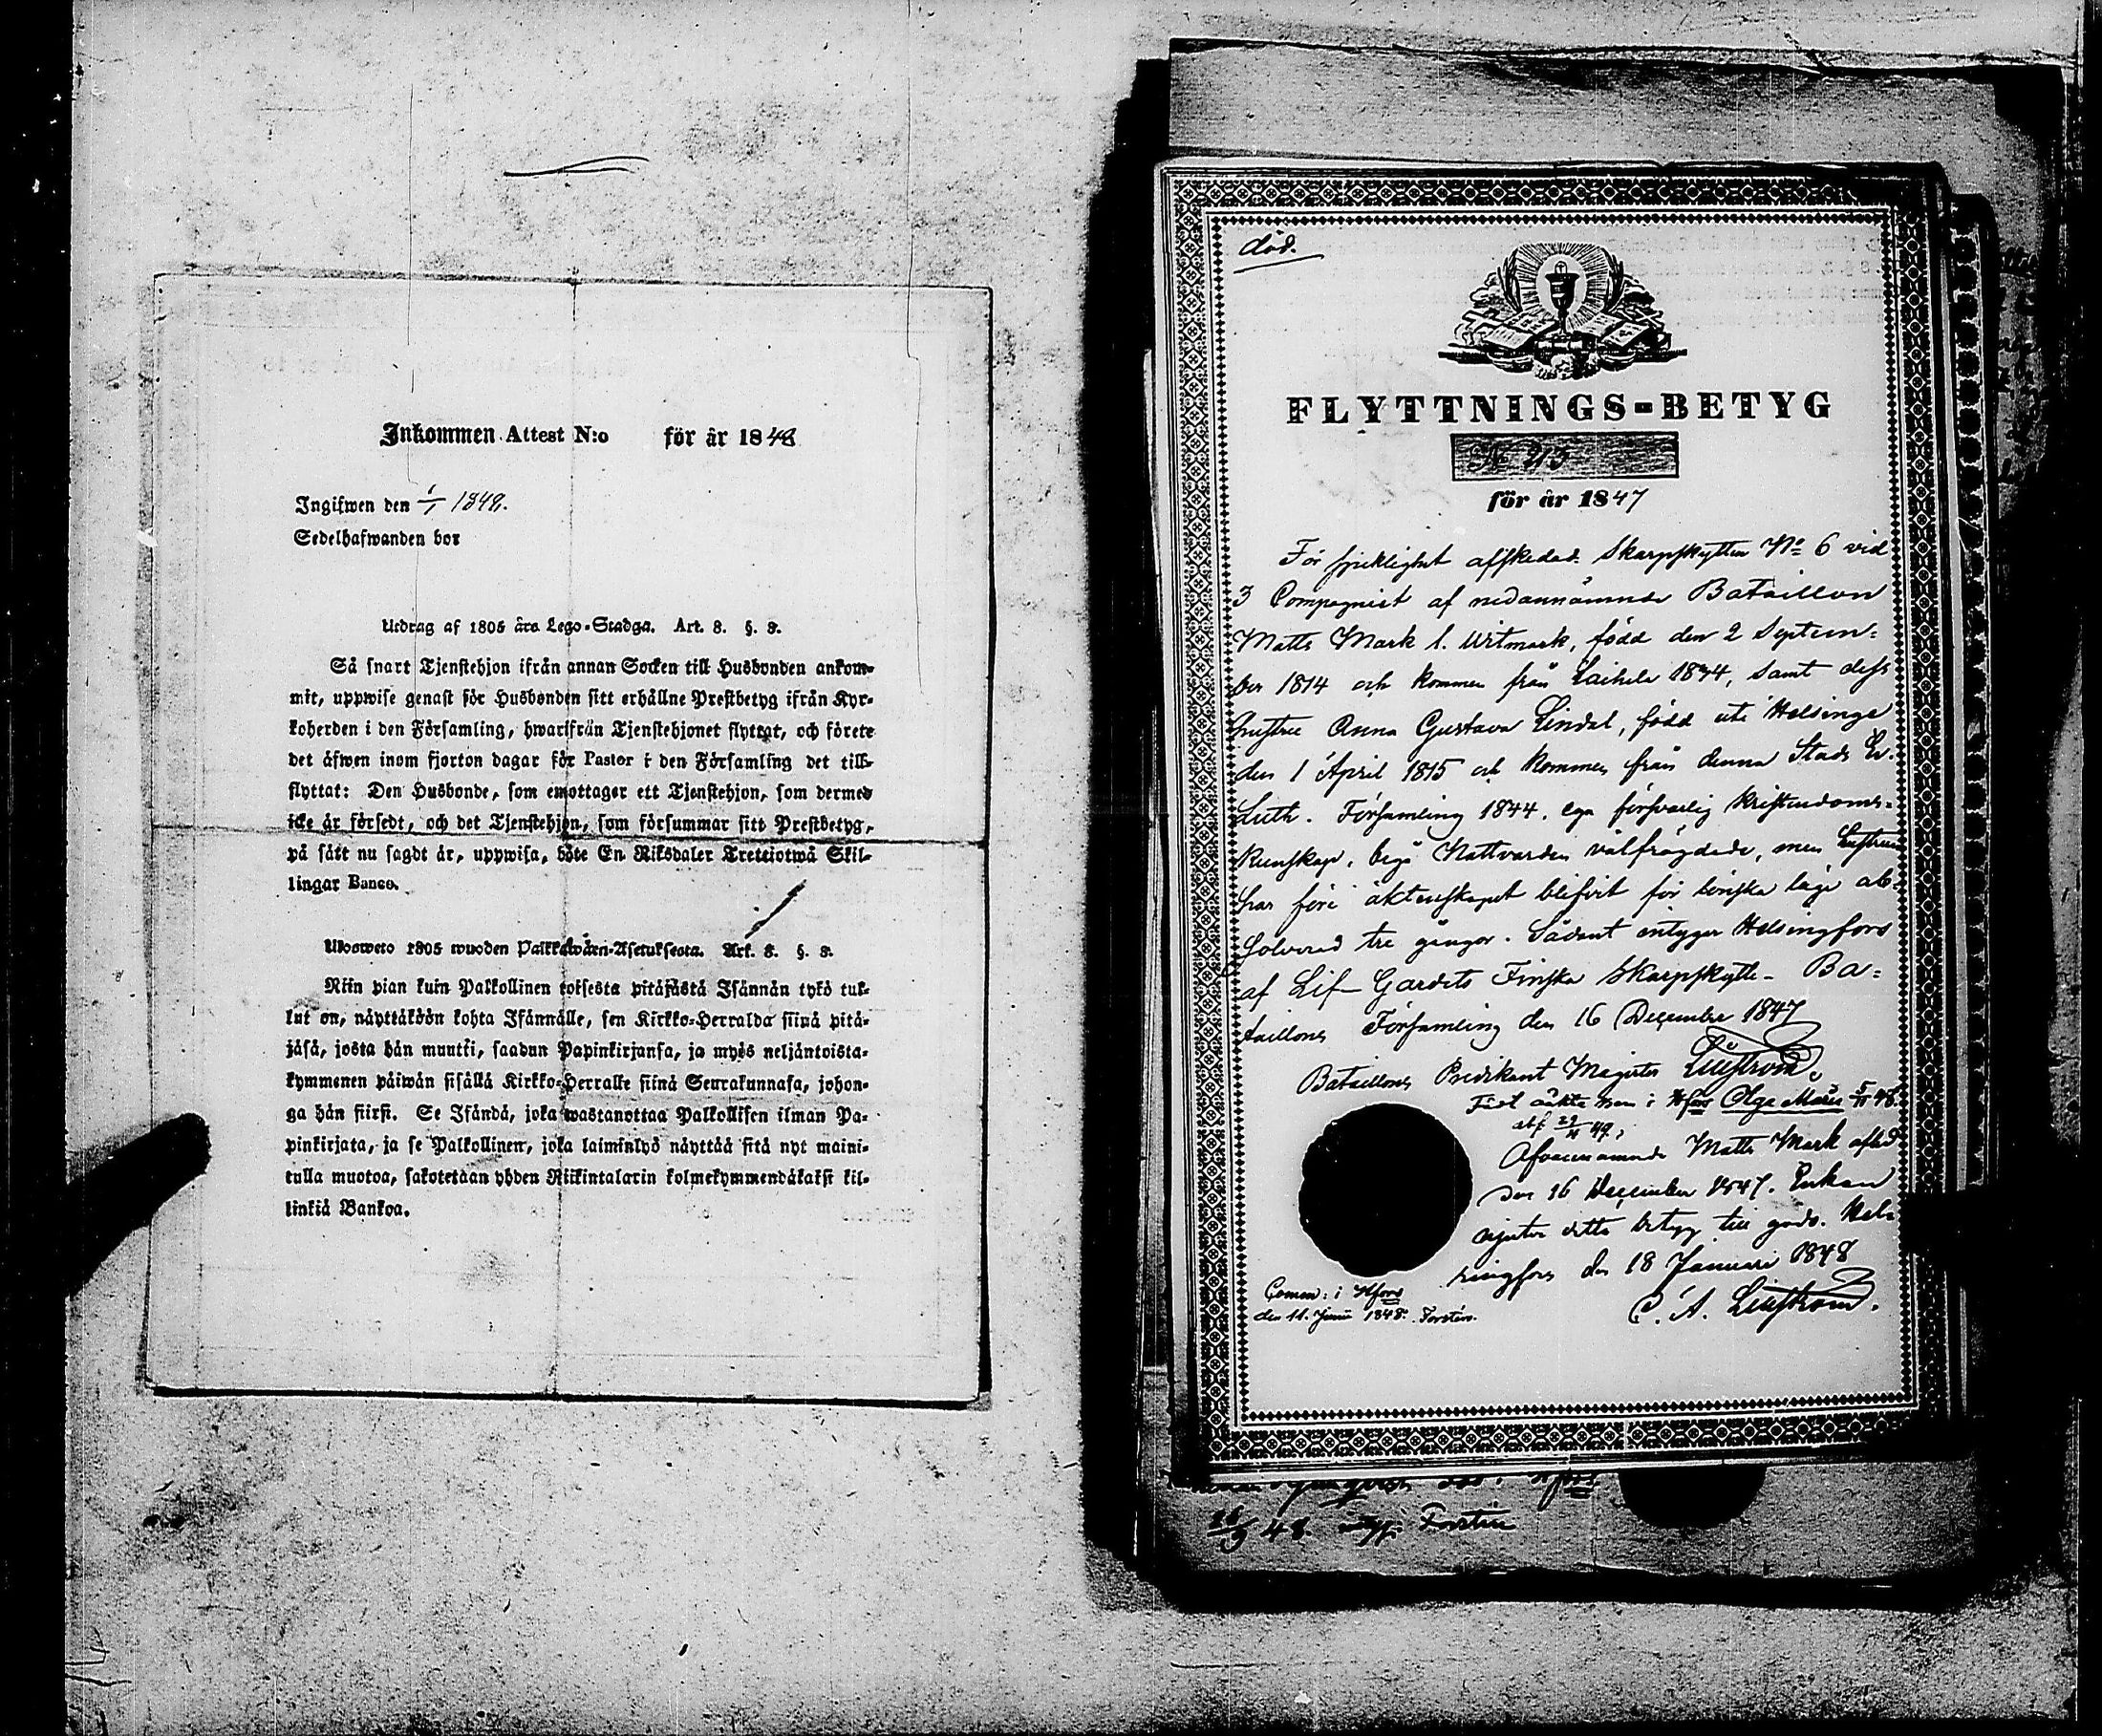 Inkommen Attest N:o för år 1848
Ingifwen den 1/1 1848.
Sedelhafwanden bor
Utdrag af 1805 års Lego-Stadga. Art. 8. §. 8.
Så snart Tjenstehjon ifrån annan Socken till Husbonden ankom-
mit, uppwise genast för Husbonden sitt erhållne Prestbetyg ifrån Kyr-
koherden i den Församling, hwarifrån Tjenstehjonet flyttat, och förete
det äfwen inom fjorton dagar för Pastor i den Församling det till-
flyttat: Den Husbonde, som emottager ett Tjenstehjon, som dermed
icke är försedt, och det Tjenstehjon, som försummar sitt Prestbetyg,
på sätt nu sagdt är, uppwisa, böte En Riksdaler Trettiotwå Skil-
lingar Banco.
Ulosweto 1805 wuoden Palkkawäen-Asetuksesta. Art. 8. §. 8.
Niin pian kuin Palkollinen toisesta pitäjästä Isännän tykö tul-
lut on, näyttäköön kohta Isännälle, sen Kirkko-Herralda siinä pitä-
jäsä, josta hän muutti, saadun Papinkirjansa, ja myös neljäntoista-
kymmenen päiwän sisällä Kirkko-Herralle siinä Seurakunnasa, johon-
ga hän siirsi. Se Isändä, joka wastanottaa Palkollisen ilman Pa-
pinkirjata, ja se Palkollinen, joka laiminlyö näyttää sitä nyt maini-
tulla muotoa, sakotetaan yhden Riikintalarin kolmekymmendäkaksi kil-
linkiä Bankoa.
död.
FLYTTNINGS-BETYG
No 213
för år 1847
För sjuklighet afskedad Skarpskytten No 6 vid
3 Compagniet af nedannämnde Bataillon
Matts Mark l. Witmark, född den 2 Septem-
ber 1814 och kommen från Laihela 1834, samt dess
hustru Anna Gustava Lindal, född uti Helsinge
den 1 April 1815 och kommen från denna Stads Ev.
Luth. Församling 1844, ega försvarlig Kristendoms-
kunskap, begå Nattvarden välfrägdade, men hustrun
har före äktenskapet blifvit för lönska läge ab-
solverad tre gånger. Sådant intygar Helsingfors
af Lif-Gardets Finska Skarpskytte-Ba-
taillons Församling den 16 December 1847
Bataillons Predikant Magister Liljström.
Född äkta barn i Hfors Olga Maria 5/11 48.
Ofvannämnde Matts Mark afled
den 16 December 1847. Enkan
njuter detta betyg till godo. Hel-
singfors den 18 Januari 1848
C. A. Liljström.
Comm: i Hfors
den 11. Junii 1848. Forstén.
48. Forstén